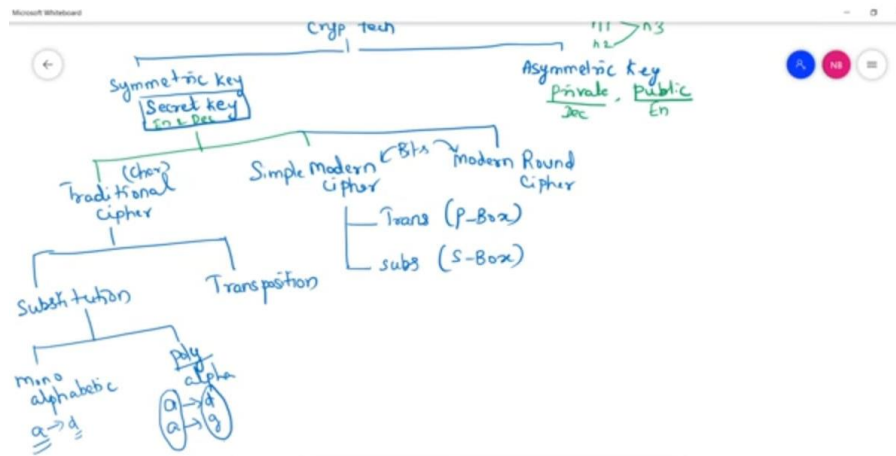 Microsoft Whiteboard
Cryp Tech
n1
n3
n2
NB
Symmetric key
Asymmetric key
Secret key
En & Dec
Private, Public
Dec
En
(Char)
Traditional
cipher
Simple Modern
cipher
Bits
Modern Round
Cipher
Trans (P-Box)
subs (S-Box)
Substitution
Transposition
mono
alphabetic
a → d
Poly
alpha
a → d
a → g